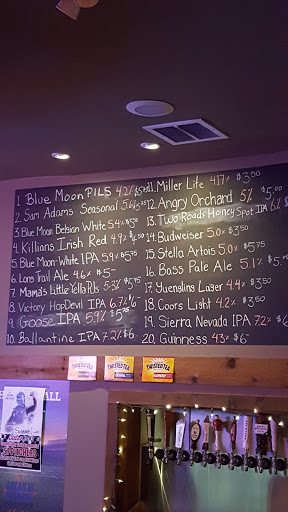 1 Blue Moon PILS 4.2% $5.75
2. Sam Adams Seasonal 5.6%
3. Blue Moon Belgian White 5.4%
4. Killians Irish Red 4.9%
5. Blue Moon-White IPA 5.9%
6. Long Trail Ale 4.6%
7. Mama's Little Yella Pils 5.3%
8. Victory HopDevil IPA 6.7%
9. Goose IPA 5.9% $5.75
10. Ballantine IPA 7.2% $6
11. Miller Lite 4.17% $3.50
12. Angry Orchard 5% $5.00
13. Two Roads Honey Spot IPA
14. Budweiser 5.0% $3.50
15. Stella Artois 5.0% $5.75
16. Bass Pale Ale 5.1%
17. Yuengling Lager 4.4% $3.50
18. Coors Light 4.2% $3.50
19. Sierra Nevada IPA 7.2%
20. Guinness 4.3% $6
TWISTED TEA
TWISTED TEA